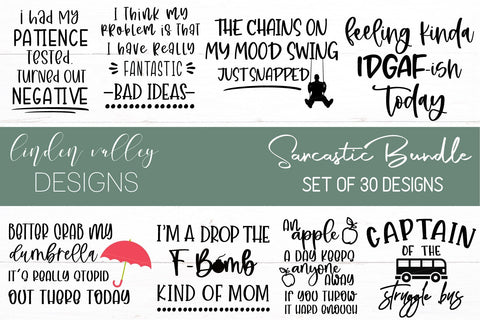 i had my
PATIENCE
tested.
turned out
NEGATIVE
I think my
problem is that
I have really
FANTASTIC
-BAD IDEAS-
THE CHAINS ON
MY MOOD SWING
JUST SNAPPED
feeling kinda
IDGAF-ish
Today
linden valley
DESIGNS
Sarcastic Bundle
SET OF 30 DESIGNS
BETTER GRAB MY
dumbrella
IT'S REALLY STUPID
OUT THERE TODAY
I'M A DROP THE
F-Bomb
KIND OF MOM
an apple
A DAY KEEPS
anyone
AWAY
IF YOU THROW
IT HARD ENOUGH
CAPTAIN
OF THE
struggle bus